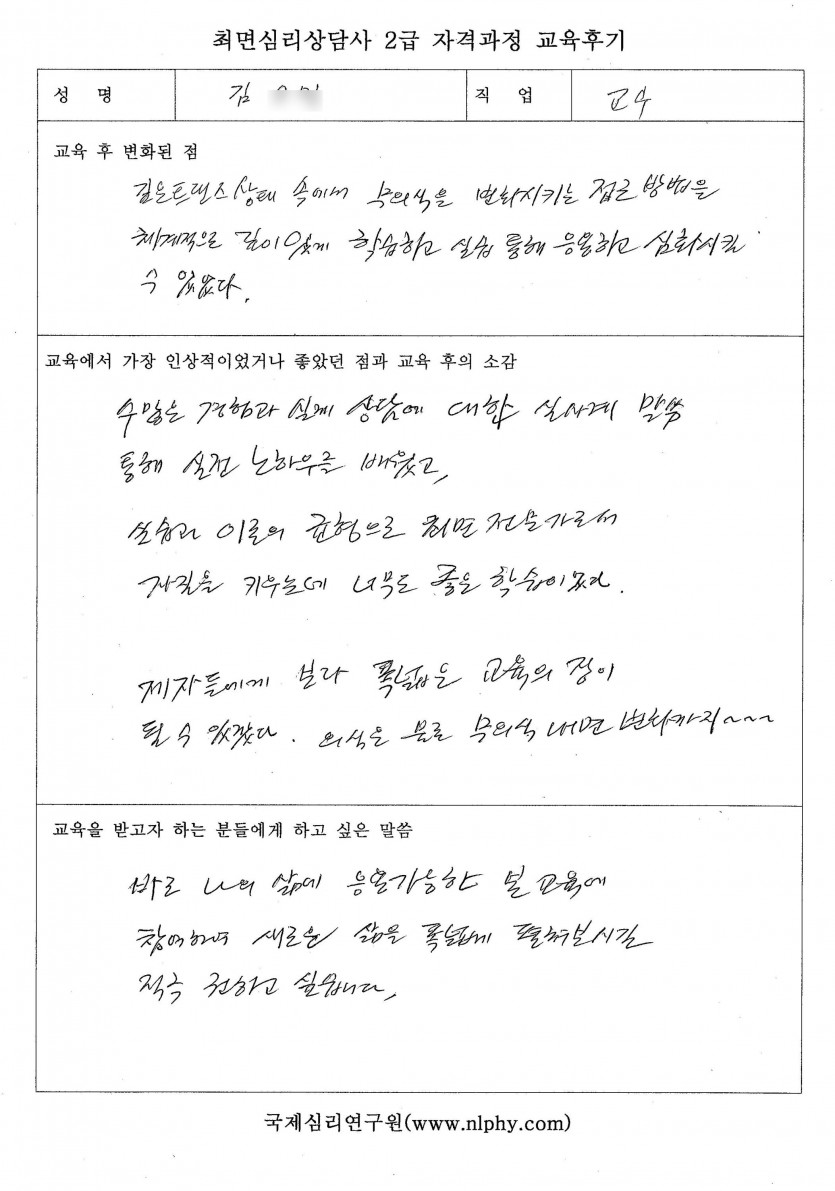 최면심리상담사 2급 자격과정 교육후기
성 명 김 직 업 교수
교육 후 변화된 점
깊은 트랜스 상태 속에서 무의식을 변화시키는 접근 방법을
체계적으로 깊이있게 학습하고 실습 통해 응용하고 심화시킬
수 있었다.
교육에서 가장 인상적이었거나 좋았던 점과 교육 후의 소감
수많은 경험과 실제 상담에 대한 실사례 말씀
통해 실전 노하우를 배웠고,
실습과 이론의 균형으로 최면 전문가로서
자질을 키우는데 너무도 좋은 학습이었다.
제자들에게 보다 폭넓은 교육의 장이
될 수 있겠다. 의식은 물론 무의식 내면 변화까지~~~
교육을 받고자 하는 분들에게 하고 싶은 말씀
바로 나의 삶에 응용가능한 본 교육에
참여하여 새로운 삶을 폭넓게 펼쳐보시길
적극 권하고 싶습니다,
국제심리연구원(www.nlphy.com)